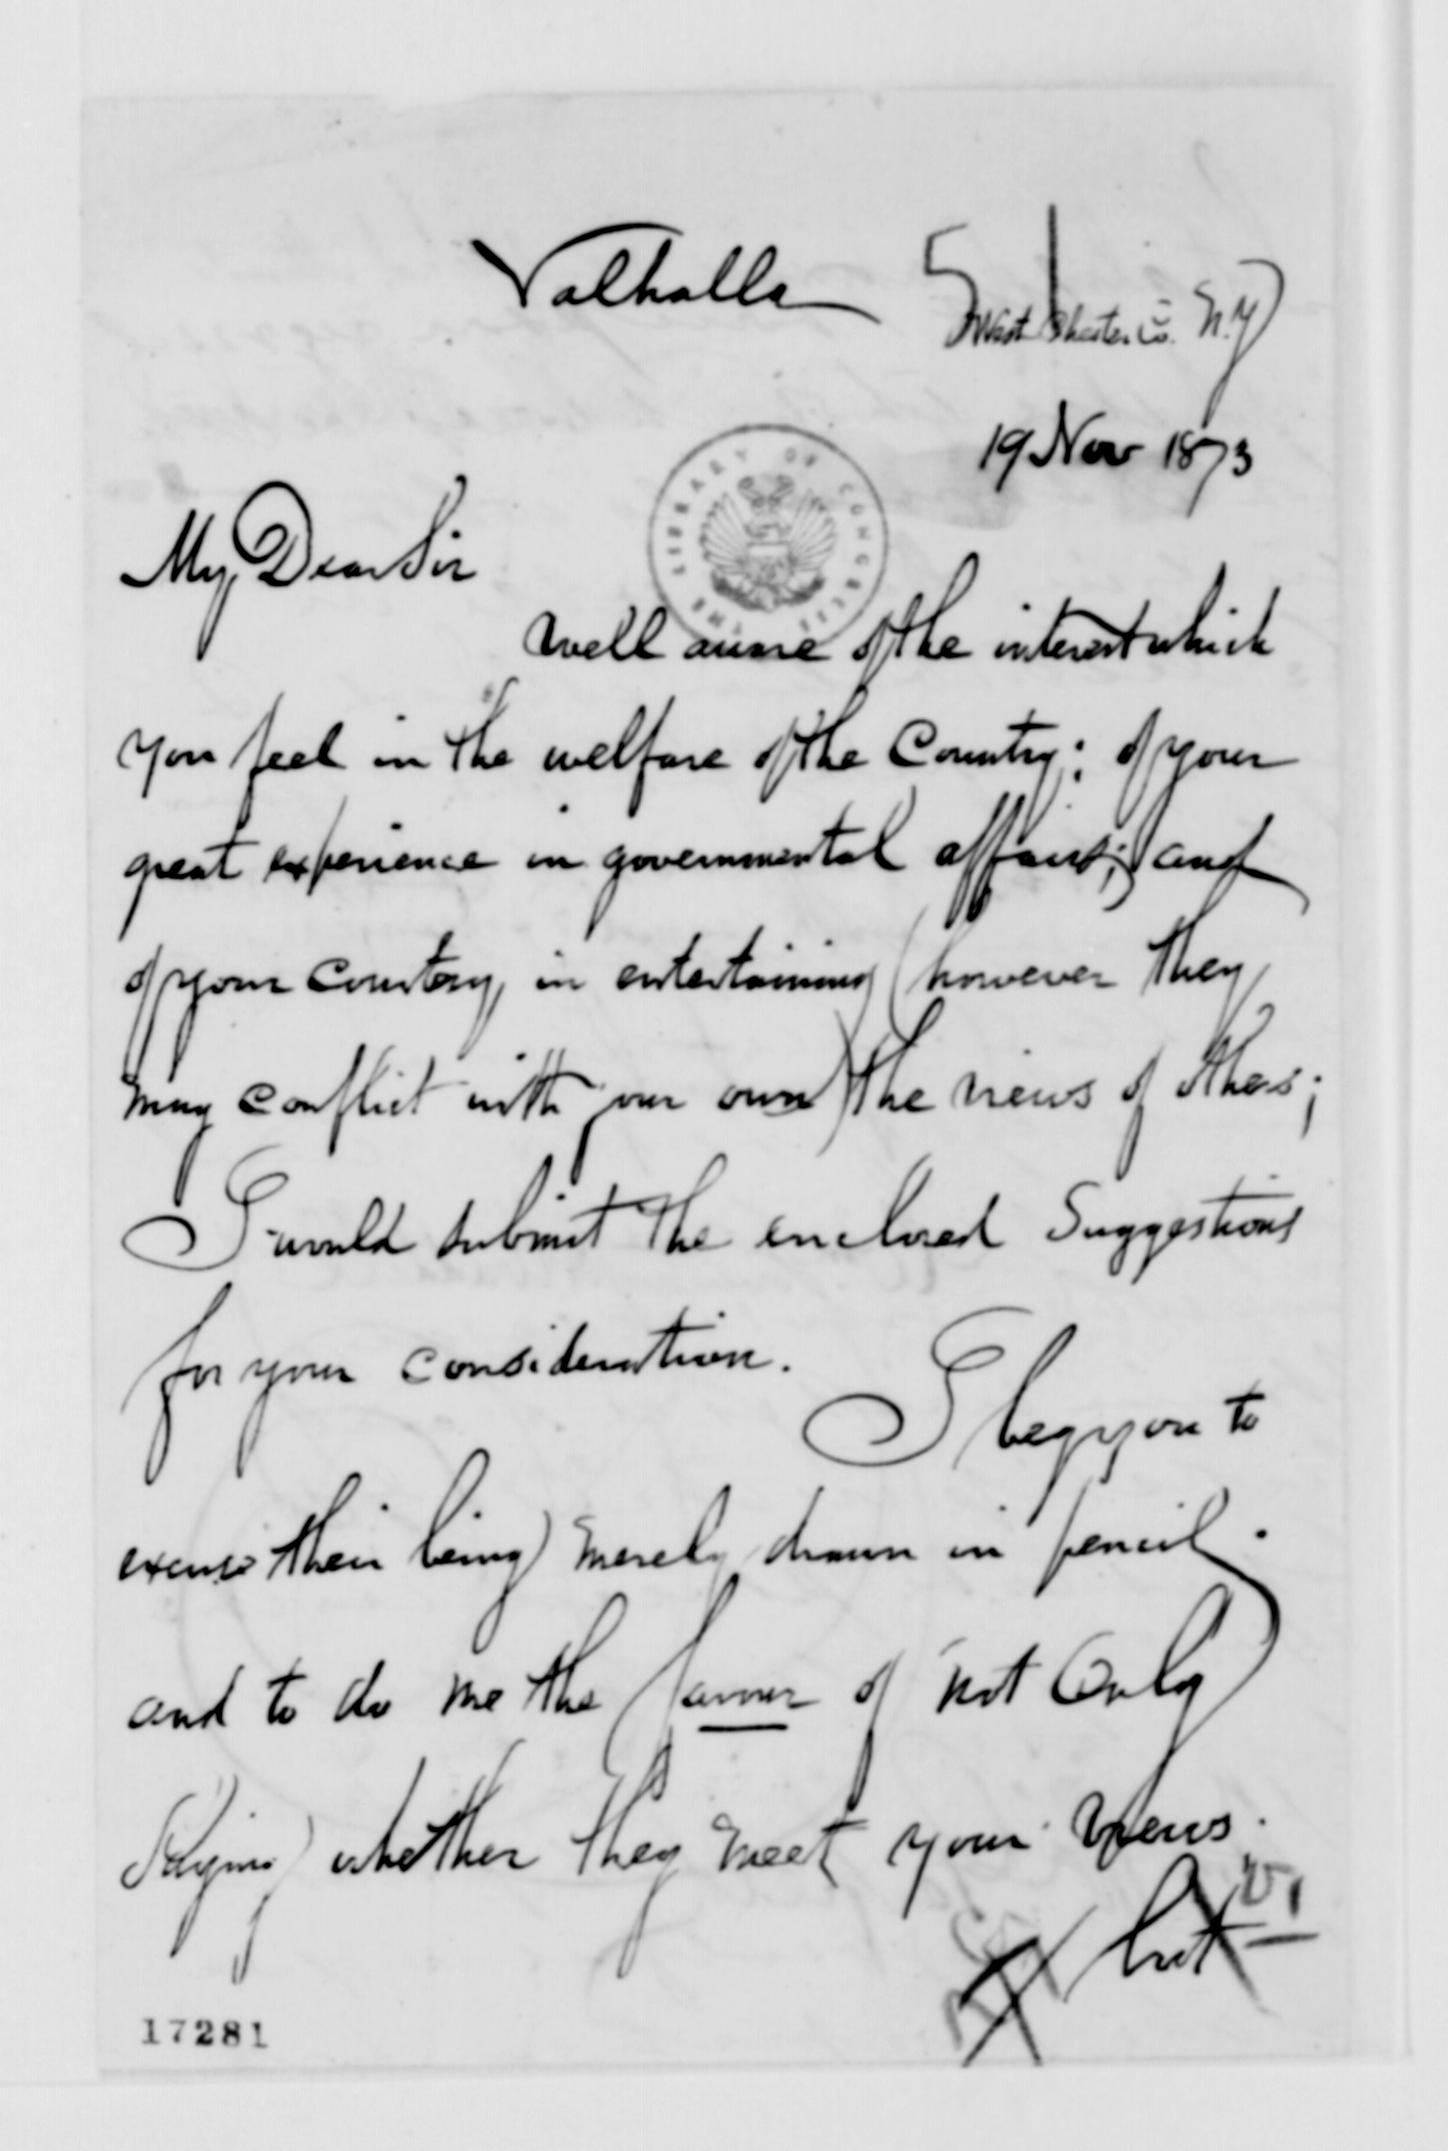 Valhalla
West Chester Co. N.Y.
19 Nov 1873
THE LIBRARY OF CONGRESS
My Dear Sir
Well aware of the interest which
you feel in the welfare of the Country; of your
great experience in governmental affairs; and
of your Courtesy, in entertaining (however they
may conflict with your own) the views of others;
I would submit the enclosed Suggestions
for your consideration.
I beg you to
excuse their being merely drawn in pencil.
and to do me the favour of not Only
Saying whether they meet your views.
but
17281